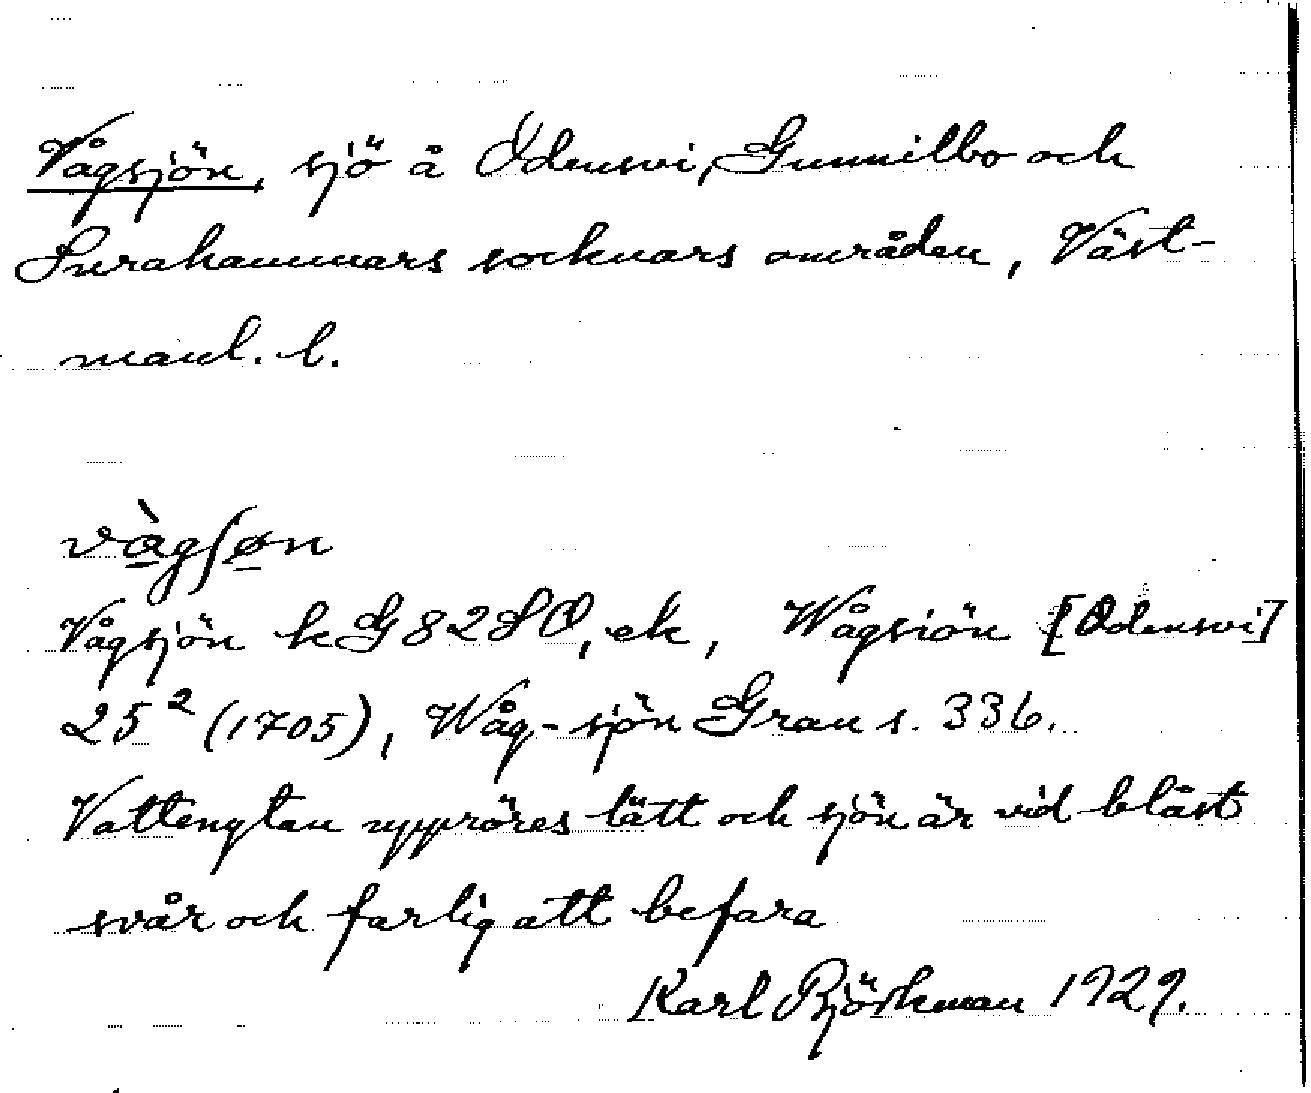 Vågsjön, sjö å Odensvi, Gunnilbo och
Surahammars socknars områden, Väst-
manl. l.
vàgʃøn
Vågsjön hG 82 SO, ek, Wågsiön [Odensvi]
25² (1705), Wåg-sjön Grau s. 336.
Vattenytan uppröres lätt och sjön är vid blåst
svår och farlig att befara
Karl Björkman 1929.